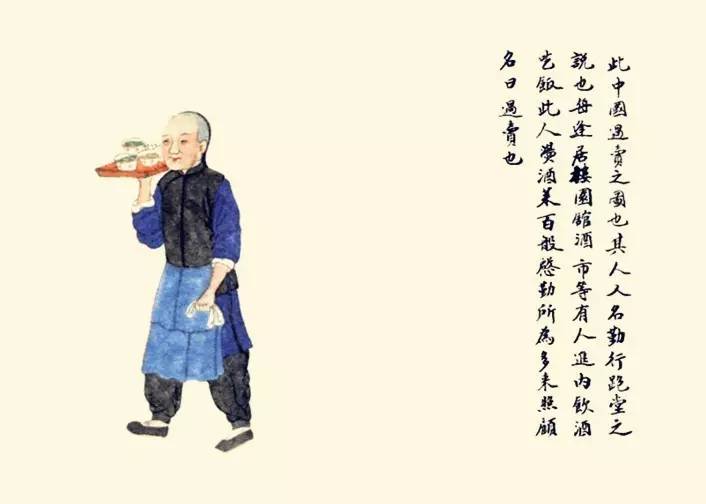 此中國過賣之圖也其人又名勤行跑堂之
說也每逢居樓園館酒市等有人進內飲酒
吃飯此人燙酒菜百般慇勤所為多來照顧
名曰過賣也